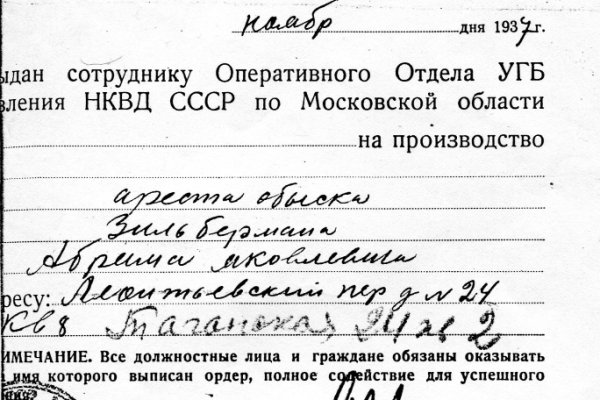 ноября дня 1937г.
ыдан сотруднику Оперативного Отдела УГБ
вления НКВД СССР по Московской области
на производство
ареста обыска
Зильбермана
Абрама Яковлевича
ресу: Леонтьевский пер д № 24
кв 8 Таганская 24 кв 2
ИМЕЧАНИЕ. Все должностные лица и граждане обязаны оказывать
имя которого выписан ордер, полное содействие для успешного